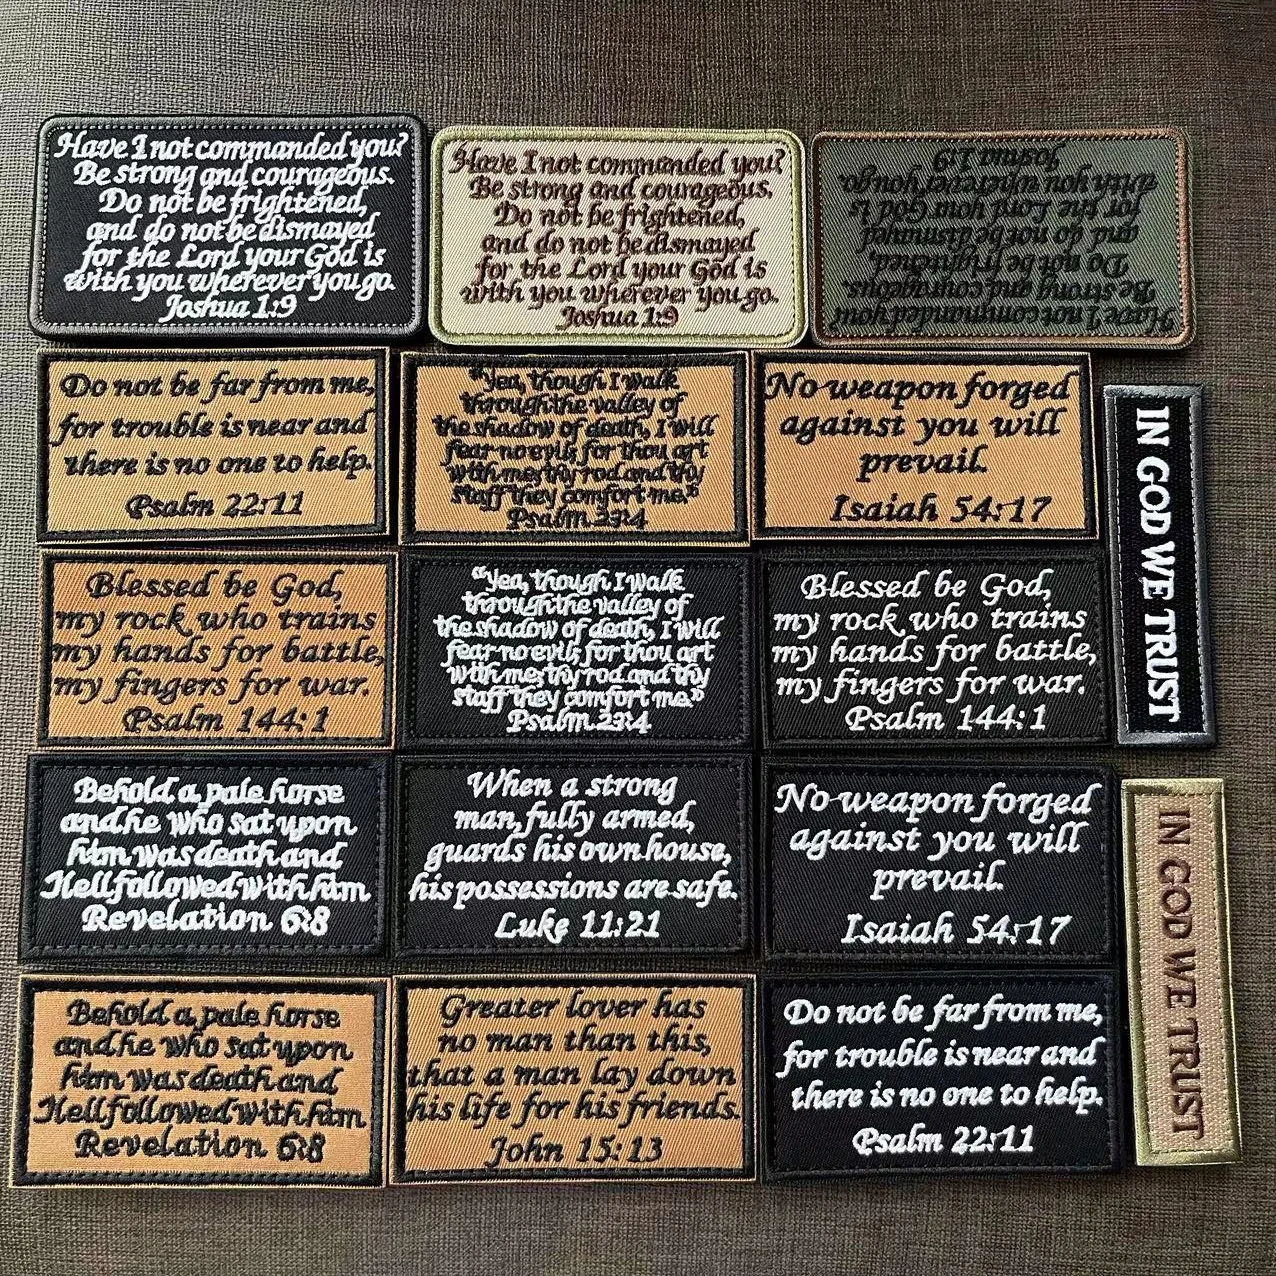 Have I not commanded you?
Be strong and courageous.
Do not be frightened,
and do not be dismayed
for the Lord your God is
with you wherever you go.
Joshua 1:9
Have I not commanded you?
Be strong and courageous.
Do not be frightened,
and do not be dismayed
for the Lord your God is
with you wherever you go.
Joshua 1:9
Have I not commanded you?
Be strong and courageous.
Do not be frightened,
and do not be dismayed
for the Lord your God is
with you wherever you go.
Joshua 1:9
Do not be far from me,
for trouble is near and
there is no one to help.
Psalm 22:11
"Yea, though I walk
through the valley of
the shadow of death, I will
fear no evil; for thou art
with me; thy rod and thy
staff they comfort me."
Psalm 23:4
No weapon forged
against you will
prevail.
Isaiah 54:17
IN GOD WE TRUST
Blessed be God,
my rock who trains
my hands for battle,
my fingers for war.
Psalm 144:1
"Yea, though I walk
through the valley of
the shadow of death, I will
fear no evil; for thou art
with me; thy rod and thy
staff they comfort me."
Psalm 23:4
Blessed be God,
my rock who trains
my hands for battle,
my fingers for war.
Psalm 144:1
Behold a pale horse
and he who sat upon
him was death and
Hell followed with him
Revelation 6:8
When a strong
man, fully armed,
guards his own house,
his possessions are safe.
Luke 11:21
No weapon forged
against you will
prevail.
Isaiah 54:17
IN GOD WE TRUST
Behold a pale horse
and he who sat upon
him was death and
Hell followed with him
Revelation 6:8
Greater lover has
no man than this,
that a man lay down
his life for his friends.
John 15:13
Do not be far from me,
for trouble is near and
there is no one to help.
Psalm 22:11